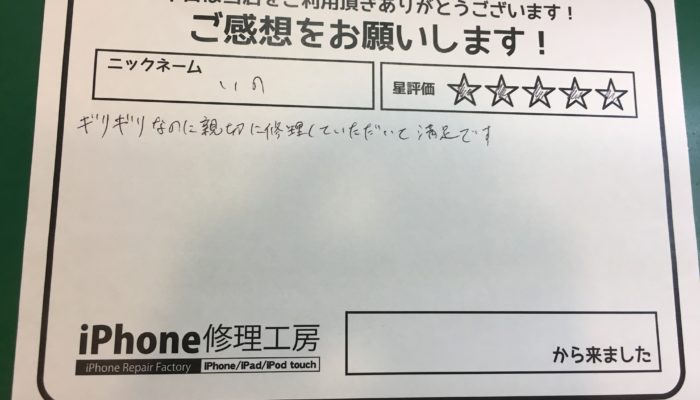 本日は当店をご利用頂きありがとうございます！
ご感想をお願いします！
ニックネーム
いの
星評価 ☆☆☆☆☆
ギリギリなのに親切に修理していただいて満足です
iPhone修理工房
iPhone Repair Factory iPhone/iPad/iPod touch
から来ました